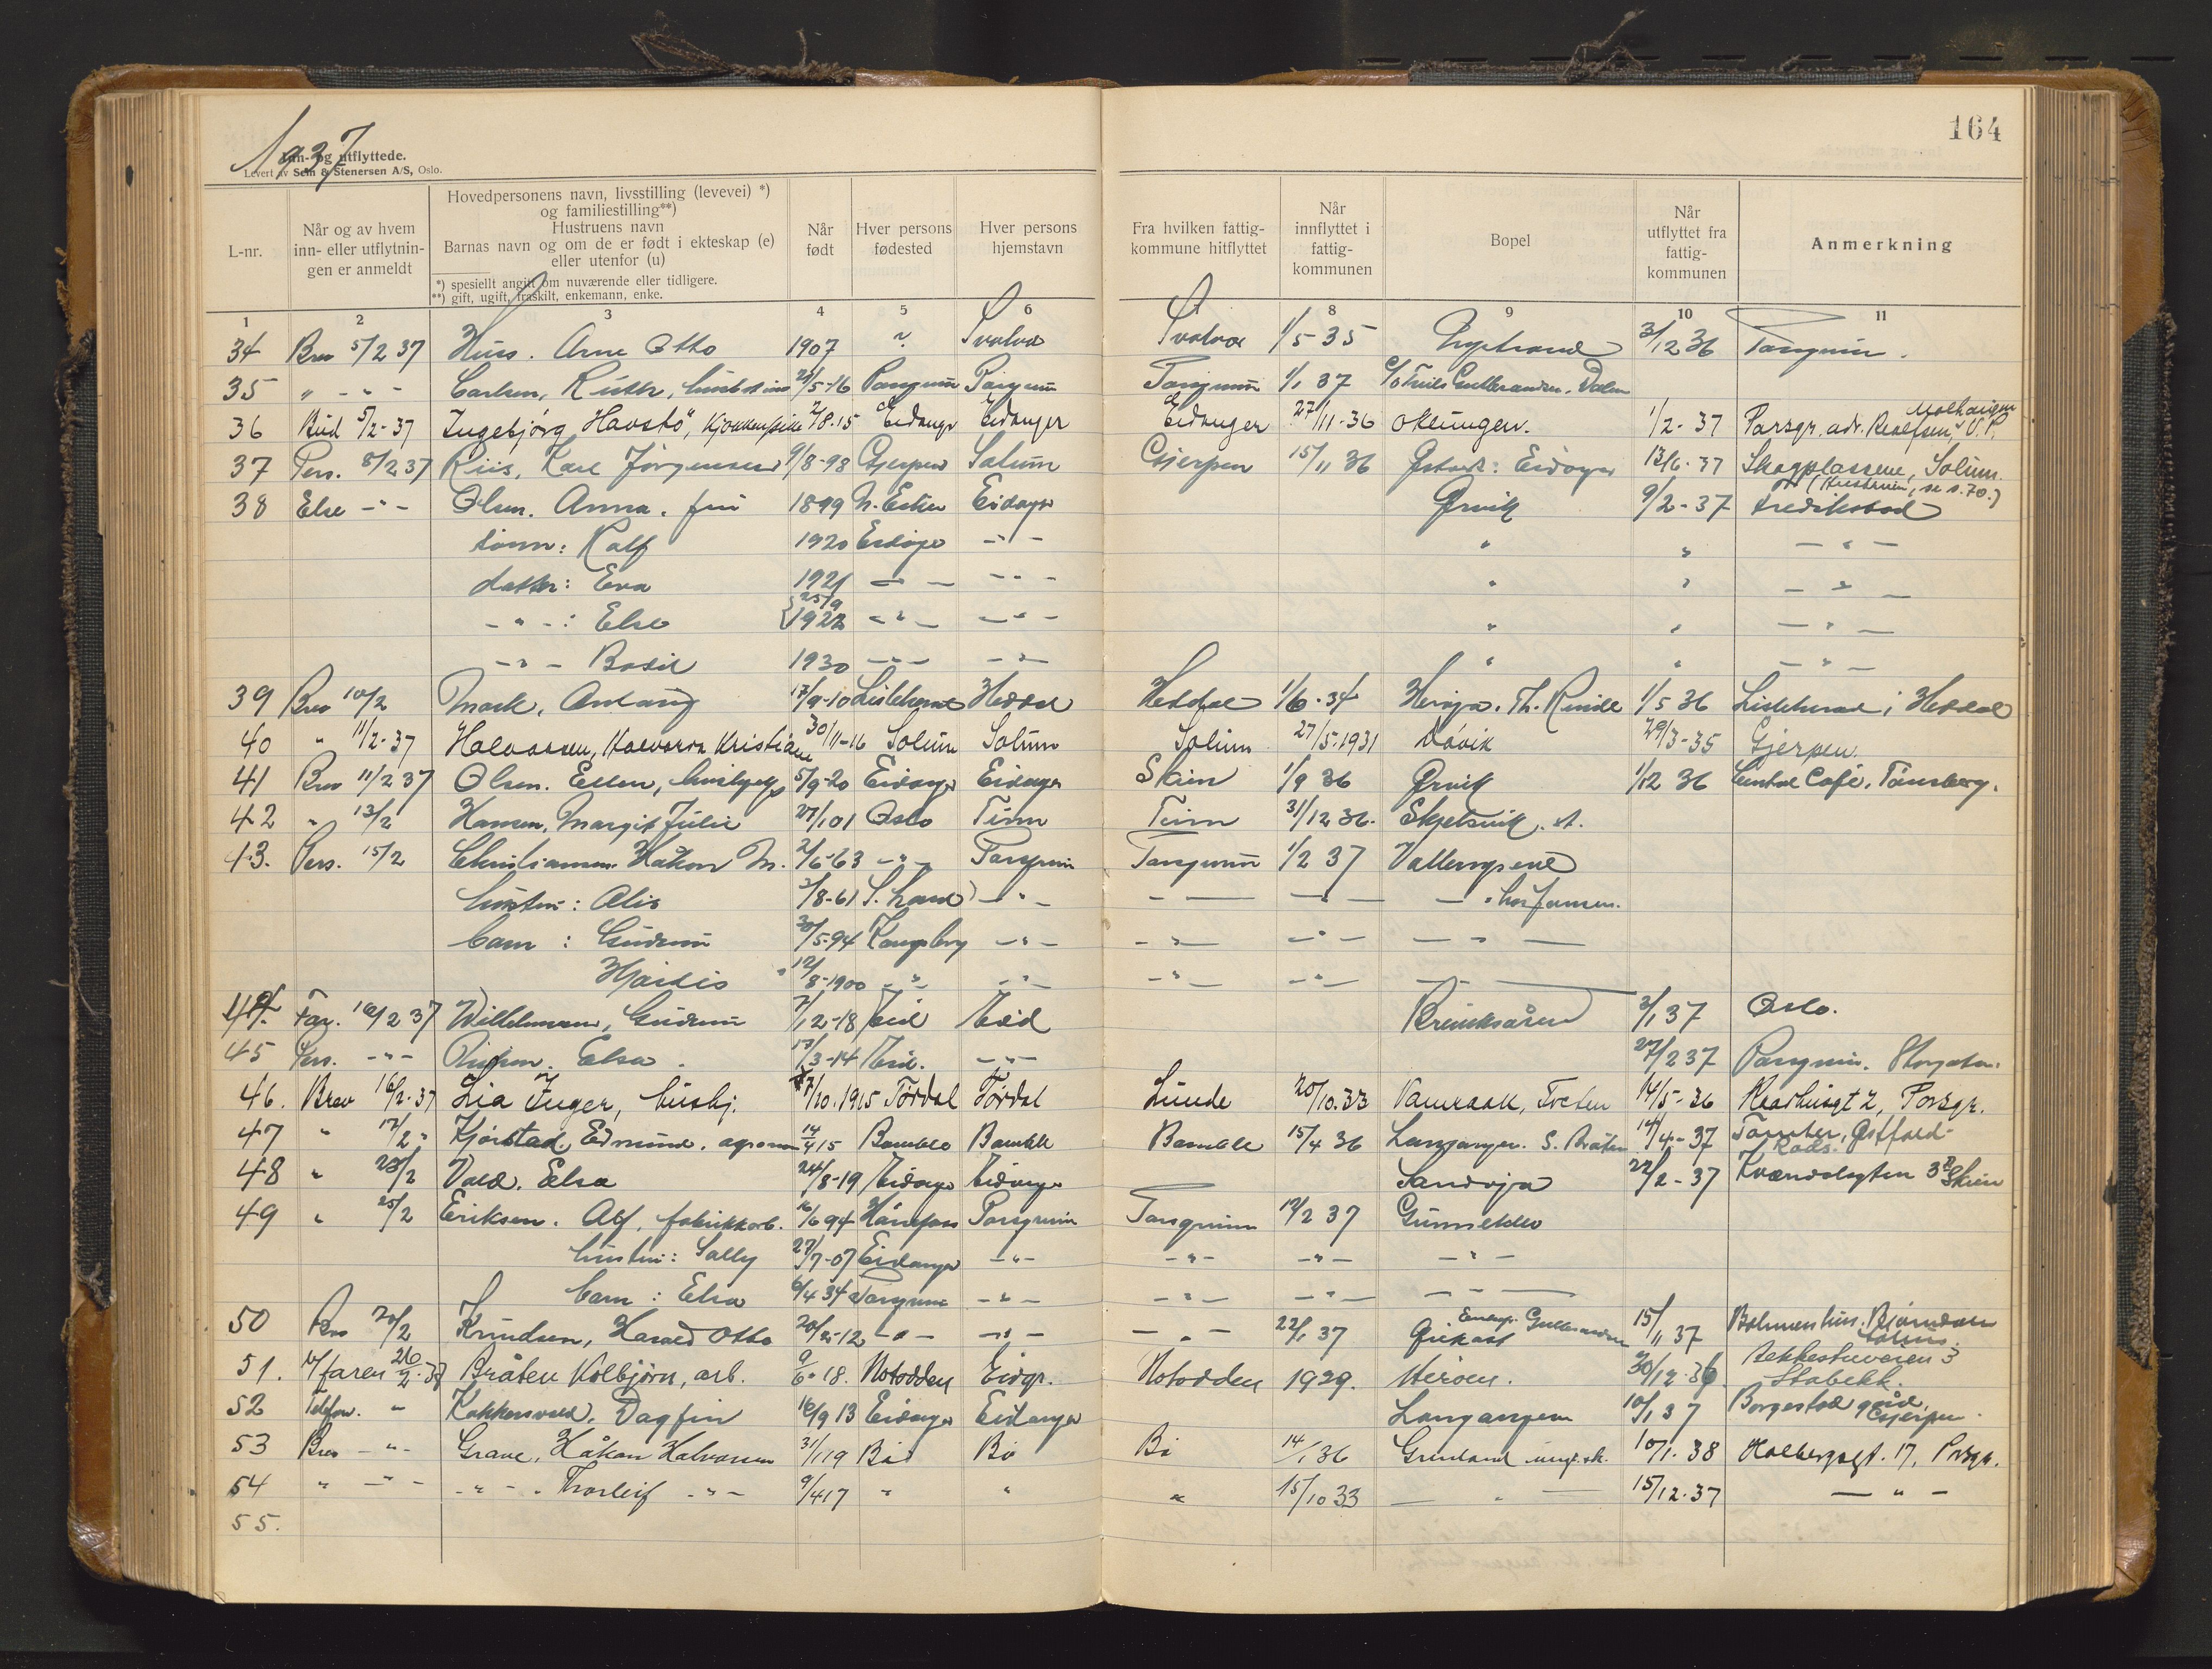 1937
Inn- og utflyttede.
Levert av Sem & Stenersen A/S, Oslo.
164
L-nr.
Når og av hvem inn- eller utflytnin- gen er anmeldt
Hovedpersonens navn, livsstilling (levevei) *)
og familiestilling**)
Hustruens navn
Barnas navn og om de er født i ekteskap (e)
eller utenfor (u)
*) spesiellt angitt om nuværende eller tidligere.
**) gift, ugift, fraskilt, enkemann, enke.
Når født
Hver persons fødested
Hver persons hjemstavn
Fra hvilken fattig- kommune hitflyttet
Når innflyttet i fattig- kommunen
Bopel
Når utflyttet fra fattig- kommunen
Anmerkning
1 2 3 4 5 6 8 9 10 11
34 Brev 5/2 37 Huss. Arne Otto 1907 ? Svolvær Svolvær 1/5-35 Nystrand 3/12 36 Porsgrunn.
35 " - " - Carlsen, Ruth, 5-16 Porsgrunn Porsgrunn Porsgrunn 1/1 37 c/o Gulbrandsen.
36 Bud 5/2-37 Ingebjørg Havstö, 2/8.15 Eidanger Eidanger Eidanger 27/11-36 Oklungen. 1/2-37 Porsgr. adr.
37 Pers. 8/2 37 Riis, Karl Jørgensen 9/8-98 Gjerpen Solum Gjerpen 15/11 36 Eidanger 13/6-37 Skogplassene, Solum.
38 Else - " - Olsen. Anna. fru 1899 Eidanger Ørvik 9/2-37 Fredrikstad
(Hustruen, se s. 70.)
sønn: Ralf 1920 Eidanger - " - " " - " -
datter: Eva 1921 - " - - " - " " - " -
- " - : Else 25/9 1922 - " - - " - " " - " -
- " - Bodil 1930 - " - - " - " " - " -
39 Brev 10/2 Mork, Anlaug 17/9-10 Lisleherad Heddal Heddal 1/6-34 Herøya. Th. Rinde 1/5 36 Lisleherad i Heddal
40 " 11/2-37 Halvorsen, Halvorin Kristiane 30/11-16 Solum Solum Solum 27/5.1931 Døvik 29/3-35 Gjerpen
41 Brev 11/2 37 Olsen. Ellen, hushjelp 5/9-20 Eidanger Eidanger Skien 1/9 36 Ørvik 1/12 36 Central Café. Tønsberg.
42 " 13/2 Hansen, Margit Julie 27/1 01 Oslo Tinn Tinn 31/12 36. Skjelsvik. A.
43. Pers. 15/2 Christiansen Håkon M. 2/6-63 - " - Porsgrunn Porsgrunn 1/2 37 Vallermyrene
hustru: Alis 3/8-61 - " - - " - - " - - " hos Jansen.
barn : Gudrun 30/5-94 Kongsberg - " - - " - - " - - " -
Hjørdis 12/8-1900 - " - - " - - " - - " -
44. Far. 16/2 37 Wilhelmsen, Gudrun 7/12-18 Eid Eid Brevikåsen 3/1 37 Oslo.
45 Pers. - " - Elsa 13/3-14 Eid. - " - 27/2 37 Porsgrunn. Storgaten
46. Brev 16/2-37 Lia Inger, hushj. 7/10.1915 Tørdal Tørdal Lunde 20/10.33 Tveten 14/5-36 Raadhusgt 2, Porsgr.
47 " 17/2 " Kjørstad Edmund. agronom 14/4 15 Bamble Bamble Bamble 15/4 36 Langangen. S. Bråten 14/4-37 Tomter, Østfold
48 " 23/2 Vold. Elsa 24/8-19 Eidanger Eidanger Sandøya 22/2-37 Skien
49 " 25/2 Eriksen. Alf. fabrikkarb. 16/6 94 Hønefoss Porsgrunn Porsgrunn 12/2 37 Gunneklev
hustru: Sally 27/7-07 Eidanger - " - - " - - " - - " -
barn : Elsa 6/4 34 Porsgrunn - " - - " - - " - - " -
50 Brev 20/2 Knudsen, Harald Otto 20/2-12 - " - - " - - " - 22/1 37 15/11 37
51. V/faren 26/2-37 Bråten Kolbjörn, arb. 9/6-18. Notodden Eidgr. Notodden 1929. Heröen. 30/12-36 Bekkestuveien 3
Stabekk.
52 Telefon. " Kokkersvold. Dagfin 16/9 13 Eidanger Eidanger Langangen 10/1 37 Borgestad gård, Gjerpen.
53 Brev - " - Grave, Håkon Halvorsen 31/1 19 Bø Bø Bø 14/1 36 Grenland ungd.sk. 10/1.38 Holbergsgt. 17, Porsgr.
54 " - " - - " - . Thorleif - " - 9/4 17 " " " 15/10 33 - " - 15/12-37 - " -
55.